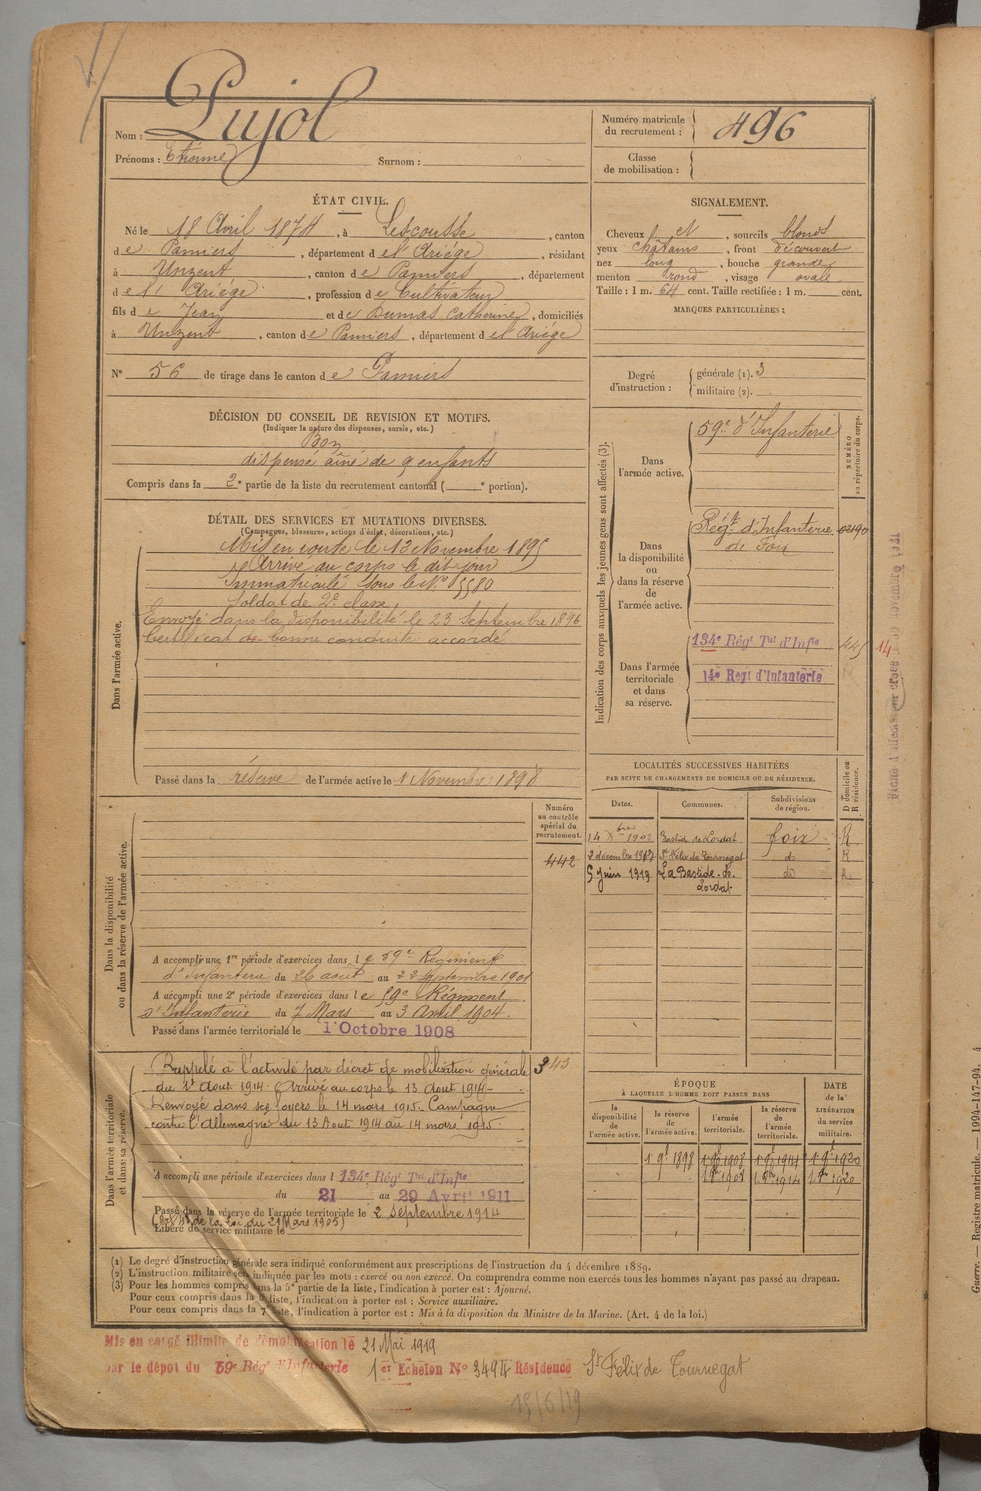 Nom : Pujol
Prénoms : Etienne Surnom :
Numéro matricule du recrutement : 496
Classe de mobilisation :
ÉTAT CIVIL.
Né le 18 Avril 1874, à Lescousse, canton
de Pamiers, département de l'Ariége, résidant
à Unzent, canton de Pamiers, département
de l'Ariége, profession de Cultivateur
fils de Jean et de Dumas Catherine, domiciliés
à Unzent, canton de Pamiers, département de l'Ariége
N° 56 de tirage dans le canton de Pamiers
SIGNALEMENT.
Cheveux et, sourcils blonds
yeux chatains, front découvert
nez long, bouche grande
menton rond, visage ovale
Taille : 1 m. 64 cent. Taille rectifiée : 1 m. cent.
MARQUES PARTICULIÈRES :
Degré d'instruction : générale (1). 3
militaire (2).
DÉCISION DU CONSEIL DE REVISION ET MOTIFS.
(Indiquer la nature des dispenses, sursis, etc.)
Bon
dispensé ainé de 9 enfants
Compris dans la 2e partie de la liste du recrutement cantonal ( e portion).
DÉTAIL DES SERVICES ET MUTATIONS DIVERSES.
(Campagnes, blessures, actions d'éclat, décorations, etc.)
Dans l'armée active.
Mis en route le 13 Novembre 1895
Arrivé au corps le dit jour
Immatriculé sous le N° 5580
Soldat de 2e classe
Envoyé dans la disponibilité le 23 Septembre 1896
Certificat de bonne conduite accordé
Passé dans la réserve de l'armée active le 1 Novembre 1898
Indication des corps auxquels les jeunes gens sont affectés (3).
NUMÉRO au répertoire du corps.
Dans l'armée active.
59e d'Infanterie
Dans la disponibilité ou dans la réserve de l'armée active.
Régt d'Infanterie 02190
de Foix
Dans l'armée territoriale et dans sa réserve.
134e Régt Tal d'Infie 445
14e Regt d'Infanterie
LOCALITÉS SUCCESSIVES HABITÉES
PAR SUITE DE CHANGEMENTS DE DOMICILE OU DE RÉSIDENCE.
Dates. Communes. Subdivisions de région. D domicile ou R résidence.
14 Xbre 1902 Bastide de Lordat foix R
St Félix de Tournegat do R
5 Juin 1913 La Bastide-de-Lordat do R
Dans la disponibilité ou dans la réserve de l'armée active.
Numéro au contrôle spécial du recrutement.
442
A accompli une 1re période d'exercices dans le 59e Régiment
d'Infanterie du 26 août au 22 Septembre 1901
A accompli une 2e période d'exercices dans le 59e Régiment
d'Infanterie du 7 Mars au 3 Avril 1904.
Passé dans l'armée territoriale le 1 Octobre 1908
Dans l'armée territoriale et dans sa réserve.
Rappelé à l'activité par décret de mobilisation générale 343
du 1er Aout 1914. Arrivé au corps le 13 Aout 1914
Renvoyé dans ses foyers le 14 mars 1915. Campagne
contre l'Allemagne du 13 Aout 1914 au 14 mars 1915.
A accompli une période d'exercices dans l 134e Rég Tal d'Infie
du 21 au 29 Avril 1911
Passé dans la réserve de l'armée territoriale le 2 Septembre 1914
de la Loi du 21 Mars 1905)
Libéré du service militaire le
ÉPOQUE
À LAQUELLE L'HOMME DOIT PASSER DANS
la disponibilité de l'armée active. la réserve de l'armée active. l'armée territoriale. la réserve de l'armée territoriale. DATE de la LIBÉRATION du service militaire.
1 9bre 1898 1 9bre 1908 1 9bre 1914 1 9bre 1920
1 8bre 1908 1 8bre 1914 1 8bre 1920
(1) Le degré d'instruction générale sera indiqué conformément aux prescriptions de l'instruction du 4 décembre 1889.
(2) L'instruction militaire sera indiquée par les mots : exercé ou non exercé. On comprendra comme non exercés tous les hommes n'ayant pas passé au drapeau.
(3) Pour les hommes compris dans la 5e partie de la liste, l'indication à porter est : Ajourné.
Pour ceux compris dans la 6e liste, l'indication à porter est : Service auxiliaire.
Pour ceux compris dans la 7e liste, l'indication à porter est : Mis à la disposition du Ministre de la Marine. (Art. 4 de la loi.)
Mis en congé illimité de démobilisation le 21 Mai 1919
par le dépot du 59e Rég' d'Infanterie 1er Echelon N° 3494 Résidence St Félix de Tournegat
15/6/19
Guerre. — Registre matricule. — 1994-147-94. 4